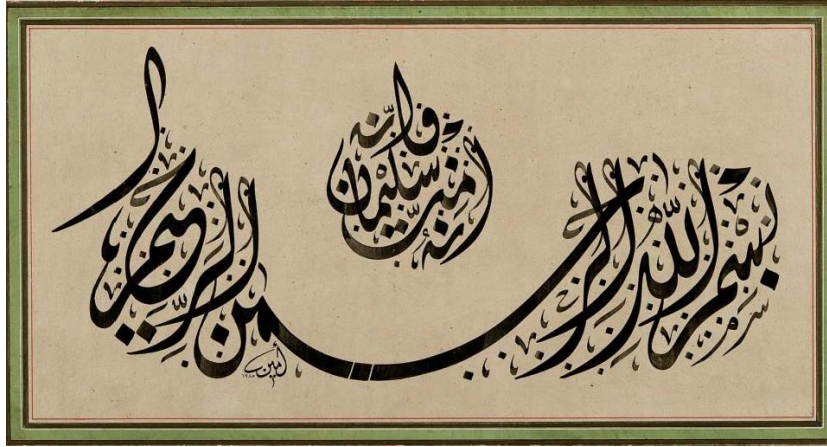 إنه من سليمان وإنه
بسم الله الرحمن الرحيم
أمين